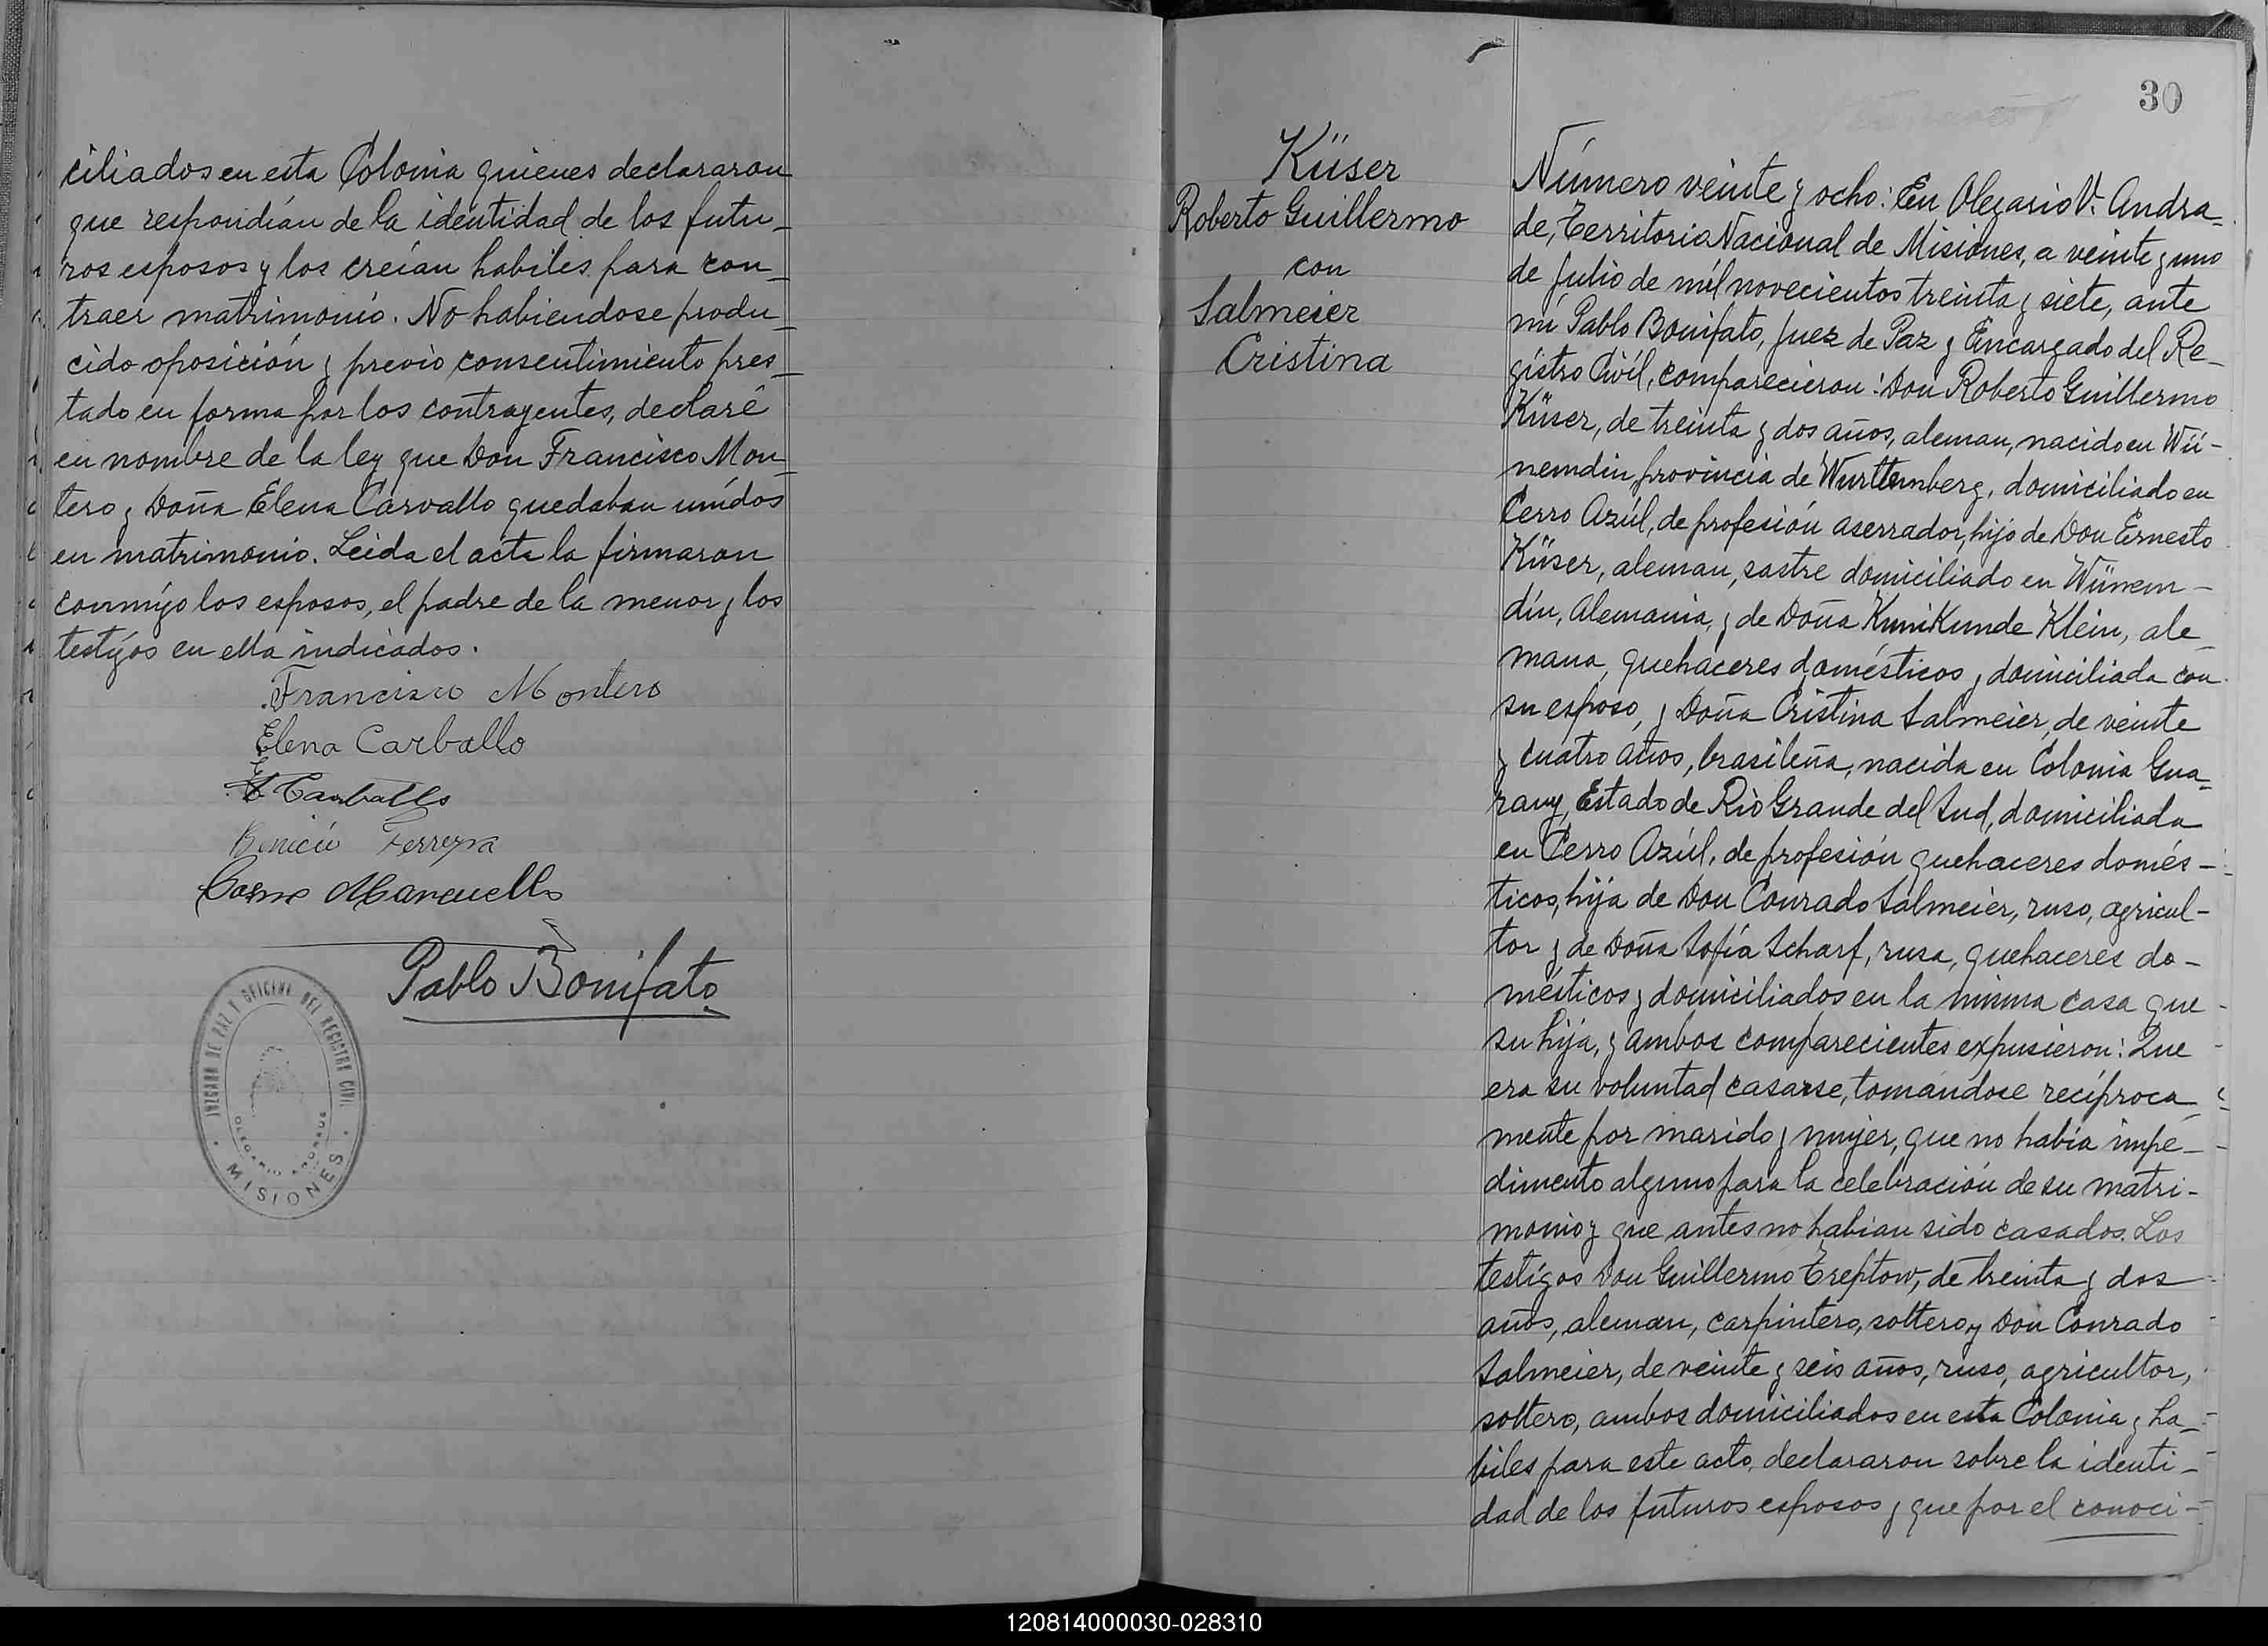 ciliados en esta Colonia quienes declararon
que respondían de la identidad de los futu-
ros esposos y los creían habiles para con-
traer matrimonio. No habiendose produ-
cido oposición y previo consentimiento pres-
tado en forma por los contrayentes, declaré
en nombre de la ley que Don Francisco Mon-
tero y Doña Elena Carvallo quedaban unidos
en matrimonio. Leida el acta la firmaron
conmigo los esposos, el padre de la menor y los
testigos en ella indicados.
Francisco Montero
Elena Carballo
Carballo
Benicio Ferreyra
Cosme Mancuello
Pablo Bonifato
JUZGADO DE PAZ Y OFICINA DEL REGISTRO CIVIL
OLEGARIO ANDRADE
MISIONES
30
Küser
Roberto Guillermo
con
Salmeier
Cristina
Número veinte y ocho: En Olegario V. Andra-
de, Territorio Nacional de Misiones, a veinte y uno
de julio de mil novecientos treinta y siete, ante
mi Pablo Bonifato, Juez de Paz y Encargado del Re-
gistro Civil, comparecieron: Don Roberto Guillermo
Küser, de treinta y dos años, aleman, nacido en Wü-
nemdin, provincia de Wurttemberg, domiciliado en
Cerro Azúl, de profesión aserrador, hijo de Don Ernesto
Küser, aleman, sastre domiciliado en Wünem-
din, Alemania, y de Doña KuniKunde Klein, ale-
mana, quehaceres domésticos y domiciliada con
su esposo, y Doña Cristina Salmeier, de veinte
y cuatro años, brasileña, nacida en Colonia Gua-
rany, Estado de Rio Grande del Sud, domiciliada
en Cerro Azúl, de profesión quehaceres domés-
ticos, hija de Don Conrado Salmeier, ruso, agricul-
tor y de Doña Sofía Scharf, rusa, quehaceres do-
mésticos y domiciliados en la misma casa que
su hija, y ambos comparecientes expusieron: Que
era su voluntad casarse, tomandose recíproca-
mente por marido y mujer, que no había impe-
dimento alguno para la celebración de su matri-
monio y que antes no habian sido casados. Los
testigos Don Guillermo Treptow, de treinta y dos
años, aleman, carpintero, soltero y Don Conrado
Salmeier, de veinte y seis años, ruso, agricultor,
soltero, ambos domiciliados en esta Colonia y ha-
biles para este acto, declararon sobre la identi-
dad de los futuros esposos y que por el conoci-
120814000030-028310